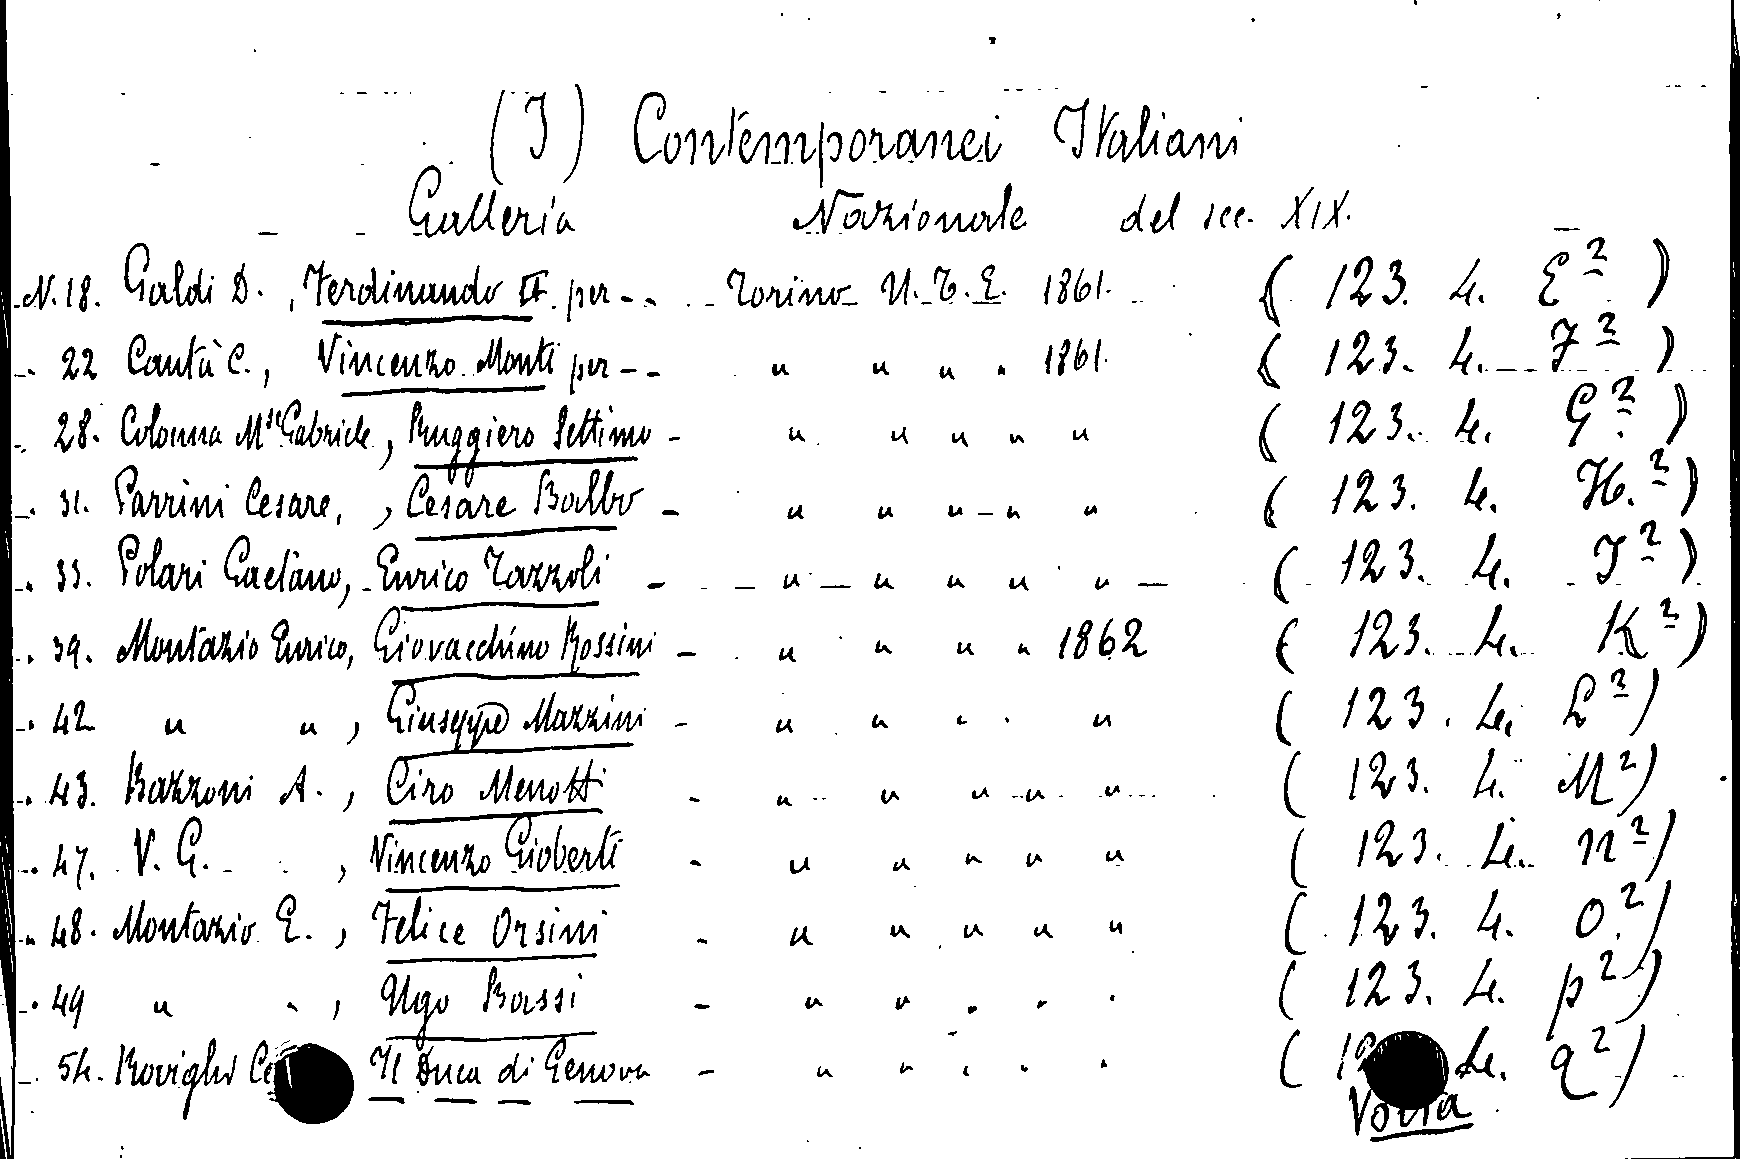 (I) Contemporanei Italiani
Galleria Nazionale del sec. XIX.
N. 18. Galdi D., Ferdinando II. per - - Torino U. T. E. 1861. ( 123. 4. E² )
" 22 Cantù C., Vincenzo Monti per - - " " " " 1861. ( 123. 4. F² )
" 28. Colonna M.se Gabriele, Ruggiero Settimo - " " " " " ( 123. 4. G² )
" 31. Parrini Cesare, , Cesare Balbo - " " " " " ( 123. 4. H.² )
" 33. Polari Gaetano, Enrico Tazzoli - " " " " " ( 123. 4. I² )
" 39. Montazio Enrico, Giovacchino Rossini - " " " " 1862 ( 123. 4. K² )
" 42 " " , Giuseppe Mazzini - " " " " " ( 123. 4. L² )
" 43. Bazzoni A., Ciro Menotti - " " " " " ( 123. 4. M² )
" 47. V. G. , Vincenzo Gioberti - " " " " " ( 123. 4. N² )
" 48. Montazio E., Felice Orsini - " " " " " ( 123. 4. O.² )
" 49 " " , Ugo Bassi - " " " " " ( 123. 4. P² )
" 54. Rovighi Ce Il Duca di Genova - " " " " " ( 12 4. Q² )
Volta